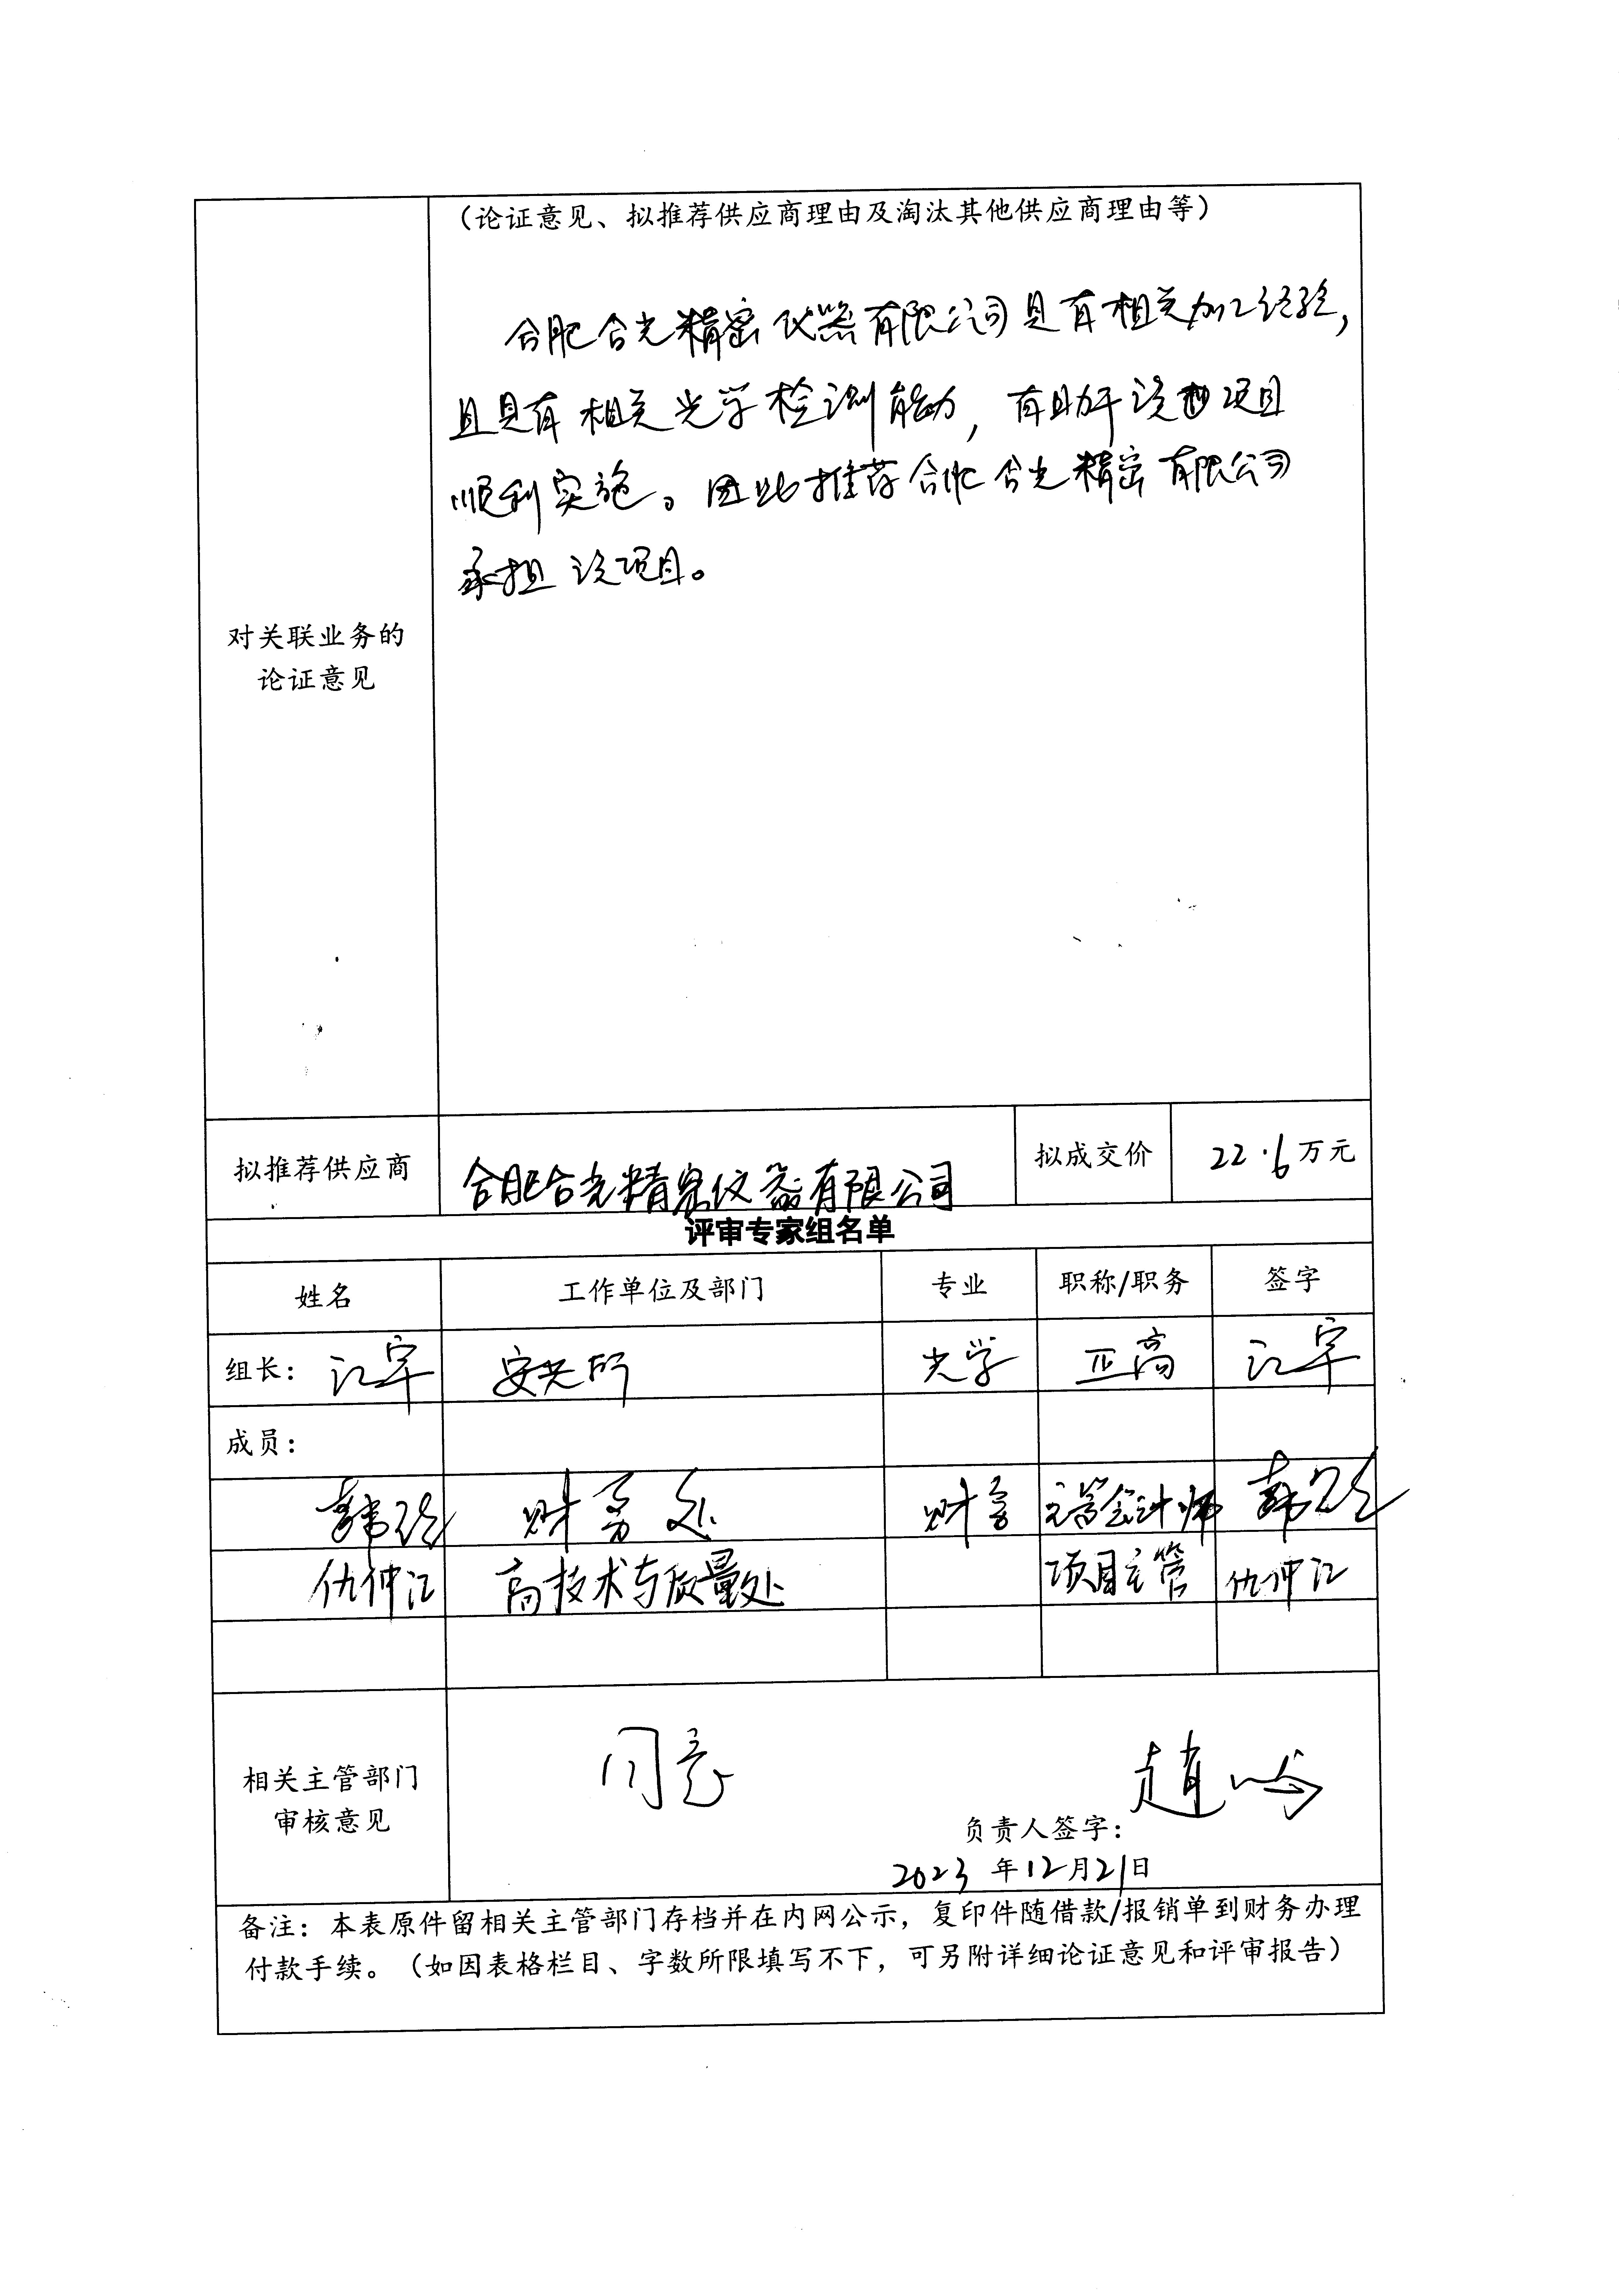 （论证意见、拟推荐供应商理由及淘汰其他供应商理由等）
合肥合光精密仪器有限公司具有相关加工经验，
且具有相关光学检测能力，有助于该项目
顺利实施。因此推荐合肥合光精密有限公司
承担该项目。
对关联业务的
论证意见
拟推荐供应商 合肥合光精密仪器有限公司 拟成交价 22.6万元
评审专家组名单
姓名 工作单位及部门 专业 职称/职务 签字
组长： 江宇 安光所 光学 正高 江宇
成员：
财务处 财务 会计师
仇仲江 高技术与质量处 项目主管 仇仲江
相关主管部门
审核意见
同意
负责人签字：
2023 年12月21日
备注：本表原件留相关主管部门存档并在内网公示，复印件随借款/报销单到财务办理
付款手续。（如因表格栏目、字数所限填写不下，可另附详细论证意见和评审报告）